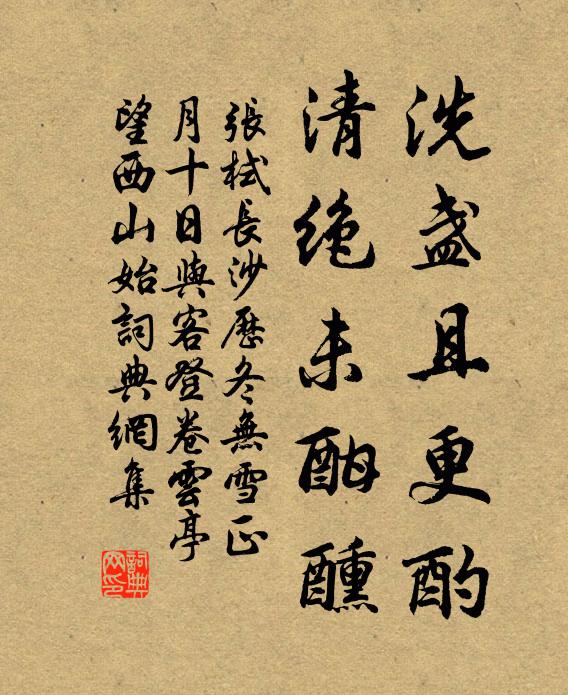 洗盞且更酌
清絶未酣醺
張栻長沙歷冬無雪正
月十日與客登卷雲亭
望西山始詞典網集
詞典網印